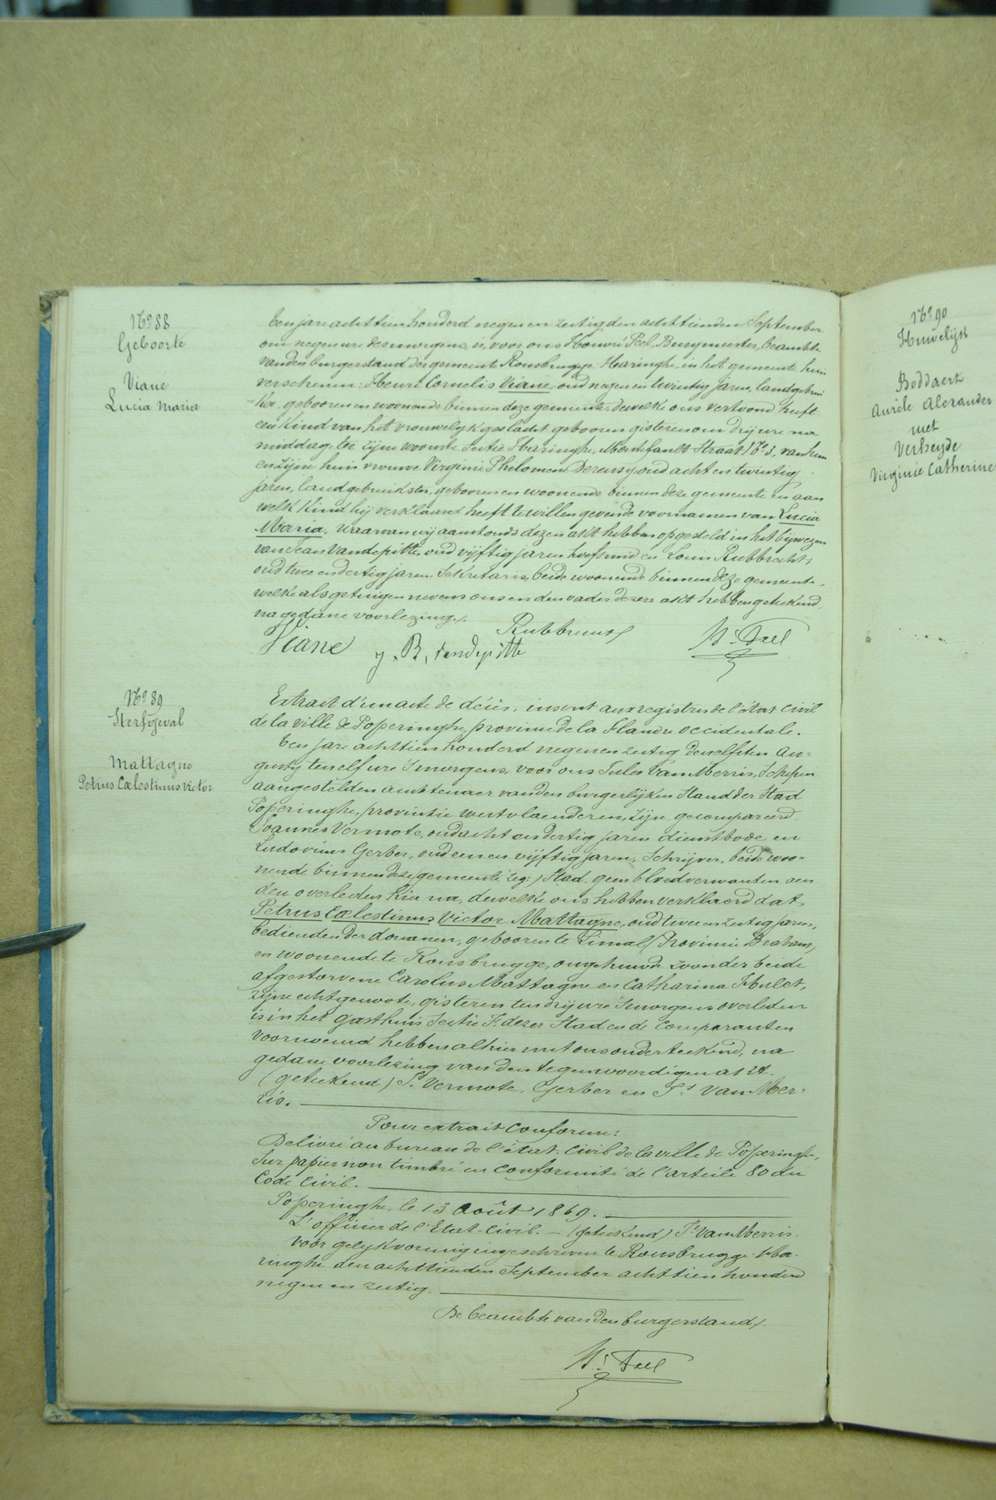 No 88
Geboorte
Viane
Lucia Maria
Een jaar achttien honderd negen en zestig den achttienden September
om negen ure des morgens, is voor ons Henri Feel Burgmeester, beambte
van den burgerstand der gemeente Rousbrugge Haringhe, in het gemeente huis
verschenen: Henri Cornelis Viane, oud negen en twintig jaren, landgebrui
ker, geboren en woonende binnen deze gemeente, dewelke ons vertoond heeft
een kind van het vrouwelyk geslacht geboren gisteren om drij ure na
middag te zijnen woonste Sectie Haringhe, straat No 1, van hem
en zijne huisvrouwe Virginie Philomene Dereusy oud acht en twintig
jaren, landgebruikster, geboren en woonende binnen deze gemeente en aan
welk kind hij verklaard heeft te willen geven de voornamen van Lucia
Maria. Waarvan wij aanstonds dezen akt hebben opgesteld in het bijwezen
van Jean Vandepitte, oud vijftig jaren en Louis Rubbrecht,
oud twee en dertig jaren Sekretaris, beide woonende binnen deze gemeente,
welke als getuigen nevens ons en den vader dezen akt hebben geteekend
na gedane voorlezing.
Viane J. B. Vandepitte Rubbrecht H. Feel
No 89
Sterfgeval
Mattagne
Petrus Cœlestinus Victor
Extrait d'un acte de décès, inscrit aux registres de l'état civil
de la ville de Poperinghe, province de la Flandre occidentale.
Een jaar achttien honderd negen en zestig den elfsten Au-
gusty ten elf ure 's morgens, voor ons Jules Van Merris, Schepen
aangestelden ambtenaer van den burgerlijken Stand der Stad
Poperinghe, provintie westvlaenderen, zijn gecompareerd
Joannes Vermote, oud acht en dertig jaren dienstbode en
Ludovicus Gerber, oud een en vijftig jaren, Schrijver, beide woo-
nende binnen deze gemeente (zeg) Stad geen bloedverwanten van
den overleden hier na, dewelke ons hebben verklaerd dat
Petrus Cœlestinus Victor Mattagne, oud twee en zestig jaren,
bedienden der douanen, geboren te Limal (Provincie Braband)
en woonende te Rousbrugge, ongehuwd zoon der beide
afgestorvene Carolus Mattagne en Catharina Hulet,
zijne echtgenoote, gisteren ten drij ure 's morgens overleden
is in het Gasthuis Sectie F. dezer Stad en de Comparanten
voornoemd hebben alhier met ons onderteekend, na
gedane voorlezing van den tegenwoordigen akt.
(geteekend) J. Vermote, Gerber en Js Van Mer-
ris.
Pour extrait conforme:
Délivré au bureau de l'état civil de la ville de Poperinghe,
Sur papier non timbré en conformité de l'article 80 du
Code Civil.
Poperinghe, le 13 Août 1869.
L'officier de l'Etat-Civil. (geteekend) Js Van Merris
Voor gelykvormig ingeschreven te Rousbrugge Ha-
ringhe den achttienden September achttien honderd
negen en zestig.
De beambte van den burgerstand,
H. Feel
No 90
Huwelijk
Beddaert
Aurèle Alexander
met
Verheyde
Virginie Catherine